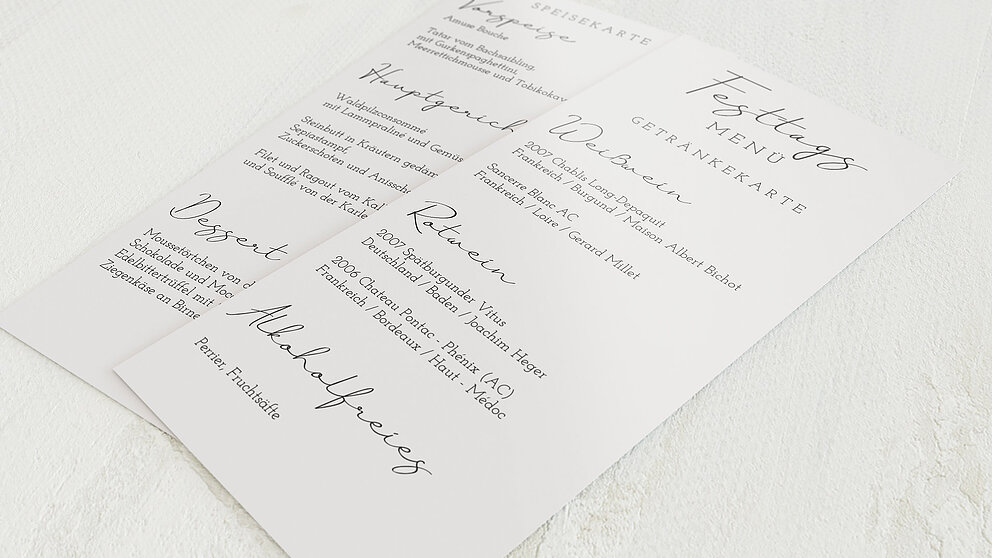 SPEISEKARTE
Vorspeise
Amuse Bouche
Tatar vom Bachsaibling,
mit Gurkenspaghettini,
Meerrettichmousse und Tobikokav
Hauptgerich
Waldpilzconsommé
mit Lammpraline und Gemüs
Steinbutt in Kräutern gedäm
Sepiastampf,
Zuckerschoten und Anissch
Filet und Ragout vom Kal
und Souffle von der Karle
Dessert
Moussetörtchen von d
Schokolade und Moc
Edelbittertrüffel mit
Ziegenkäse an Birne
Festtags
MENÜ
GETRÄNKEKARTE
Weißwein
2007 Chablis Long-Depaquit
Frankreich / Burgund / Maison Albert Bichot
Sancerre Blanc AC
Frankreich / Loire / Gerard Millet
Rotwein
2007 Spätburgunder Vitus
Deutschland / Baden / Joachim Heger
2006 Chateau Pontac - Phénix (AC)
Frankreich / Bordeaux / Haut - Médoc
Alkoholfreies
Perrier, Fruchtsäfte